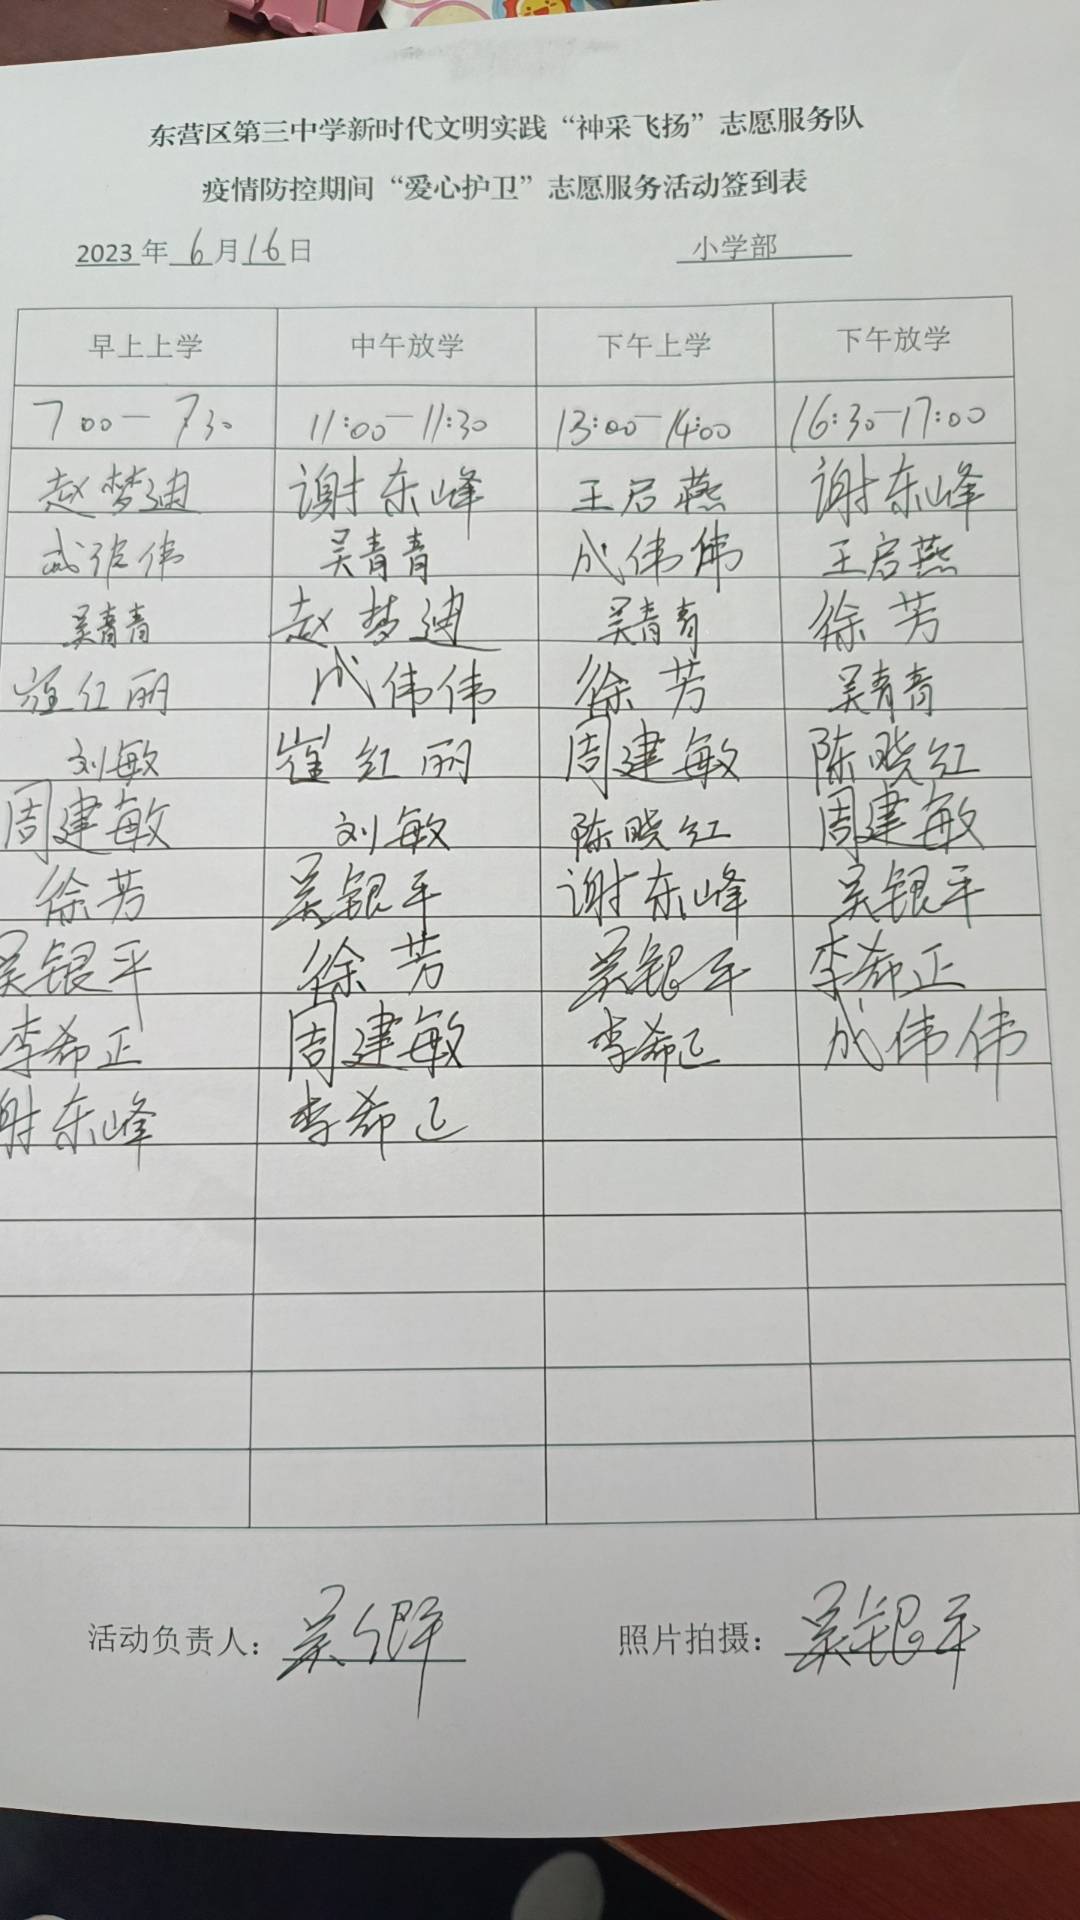 东营区第三中学新时代文明实践“神采飞扬”志愿服务队
疫情防控期间“爱心护卫”志愿服务活动签到表
2023 年 6 月 16 日 小学部
早上上学 中午放学 下午上学 下午放学
7 00一 7 30 11:00一11:30 13:00一14:00 16:30一17:00
赵梦迪 谢东峰 王启燕 谢东峰
成伟伟 吴青青 成伟伟 王启燕
吴青青 赵梦迪 吴青青 徐芳
崔红丽 成伟伟 徐芳 吴青青
刘敏 崔红丽 周建敏 陈晓红
周建敏 刘敏 陈晓红 周建敏
徐芳 吴银平 谢东峰 吴银平
吴银平 徐芳 吴银平 李希正
李希正 周建敏 李希正 成伟伟
谢东峰 李希正
活动负责人：吴银平 照片拍摄：吴银平